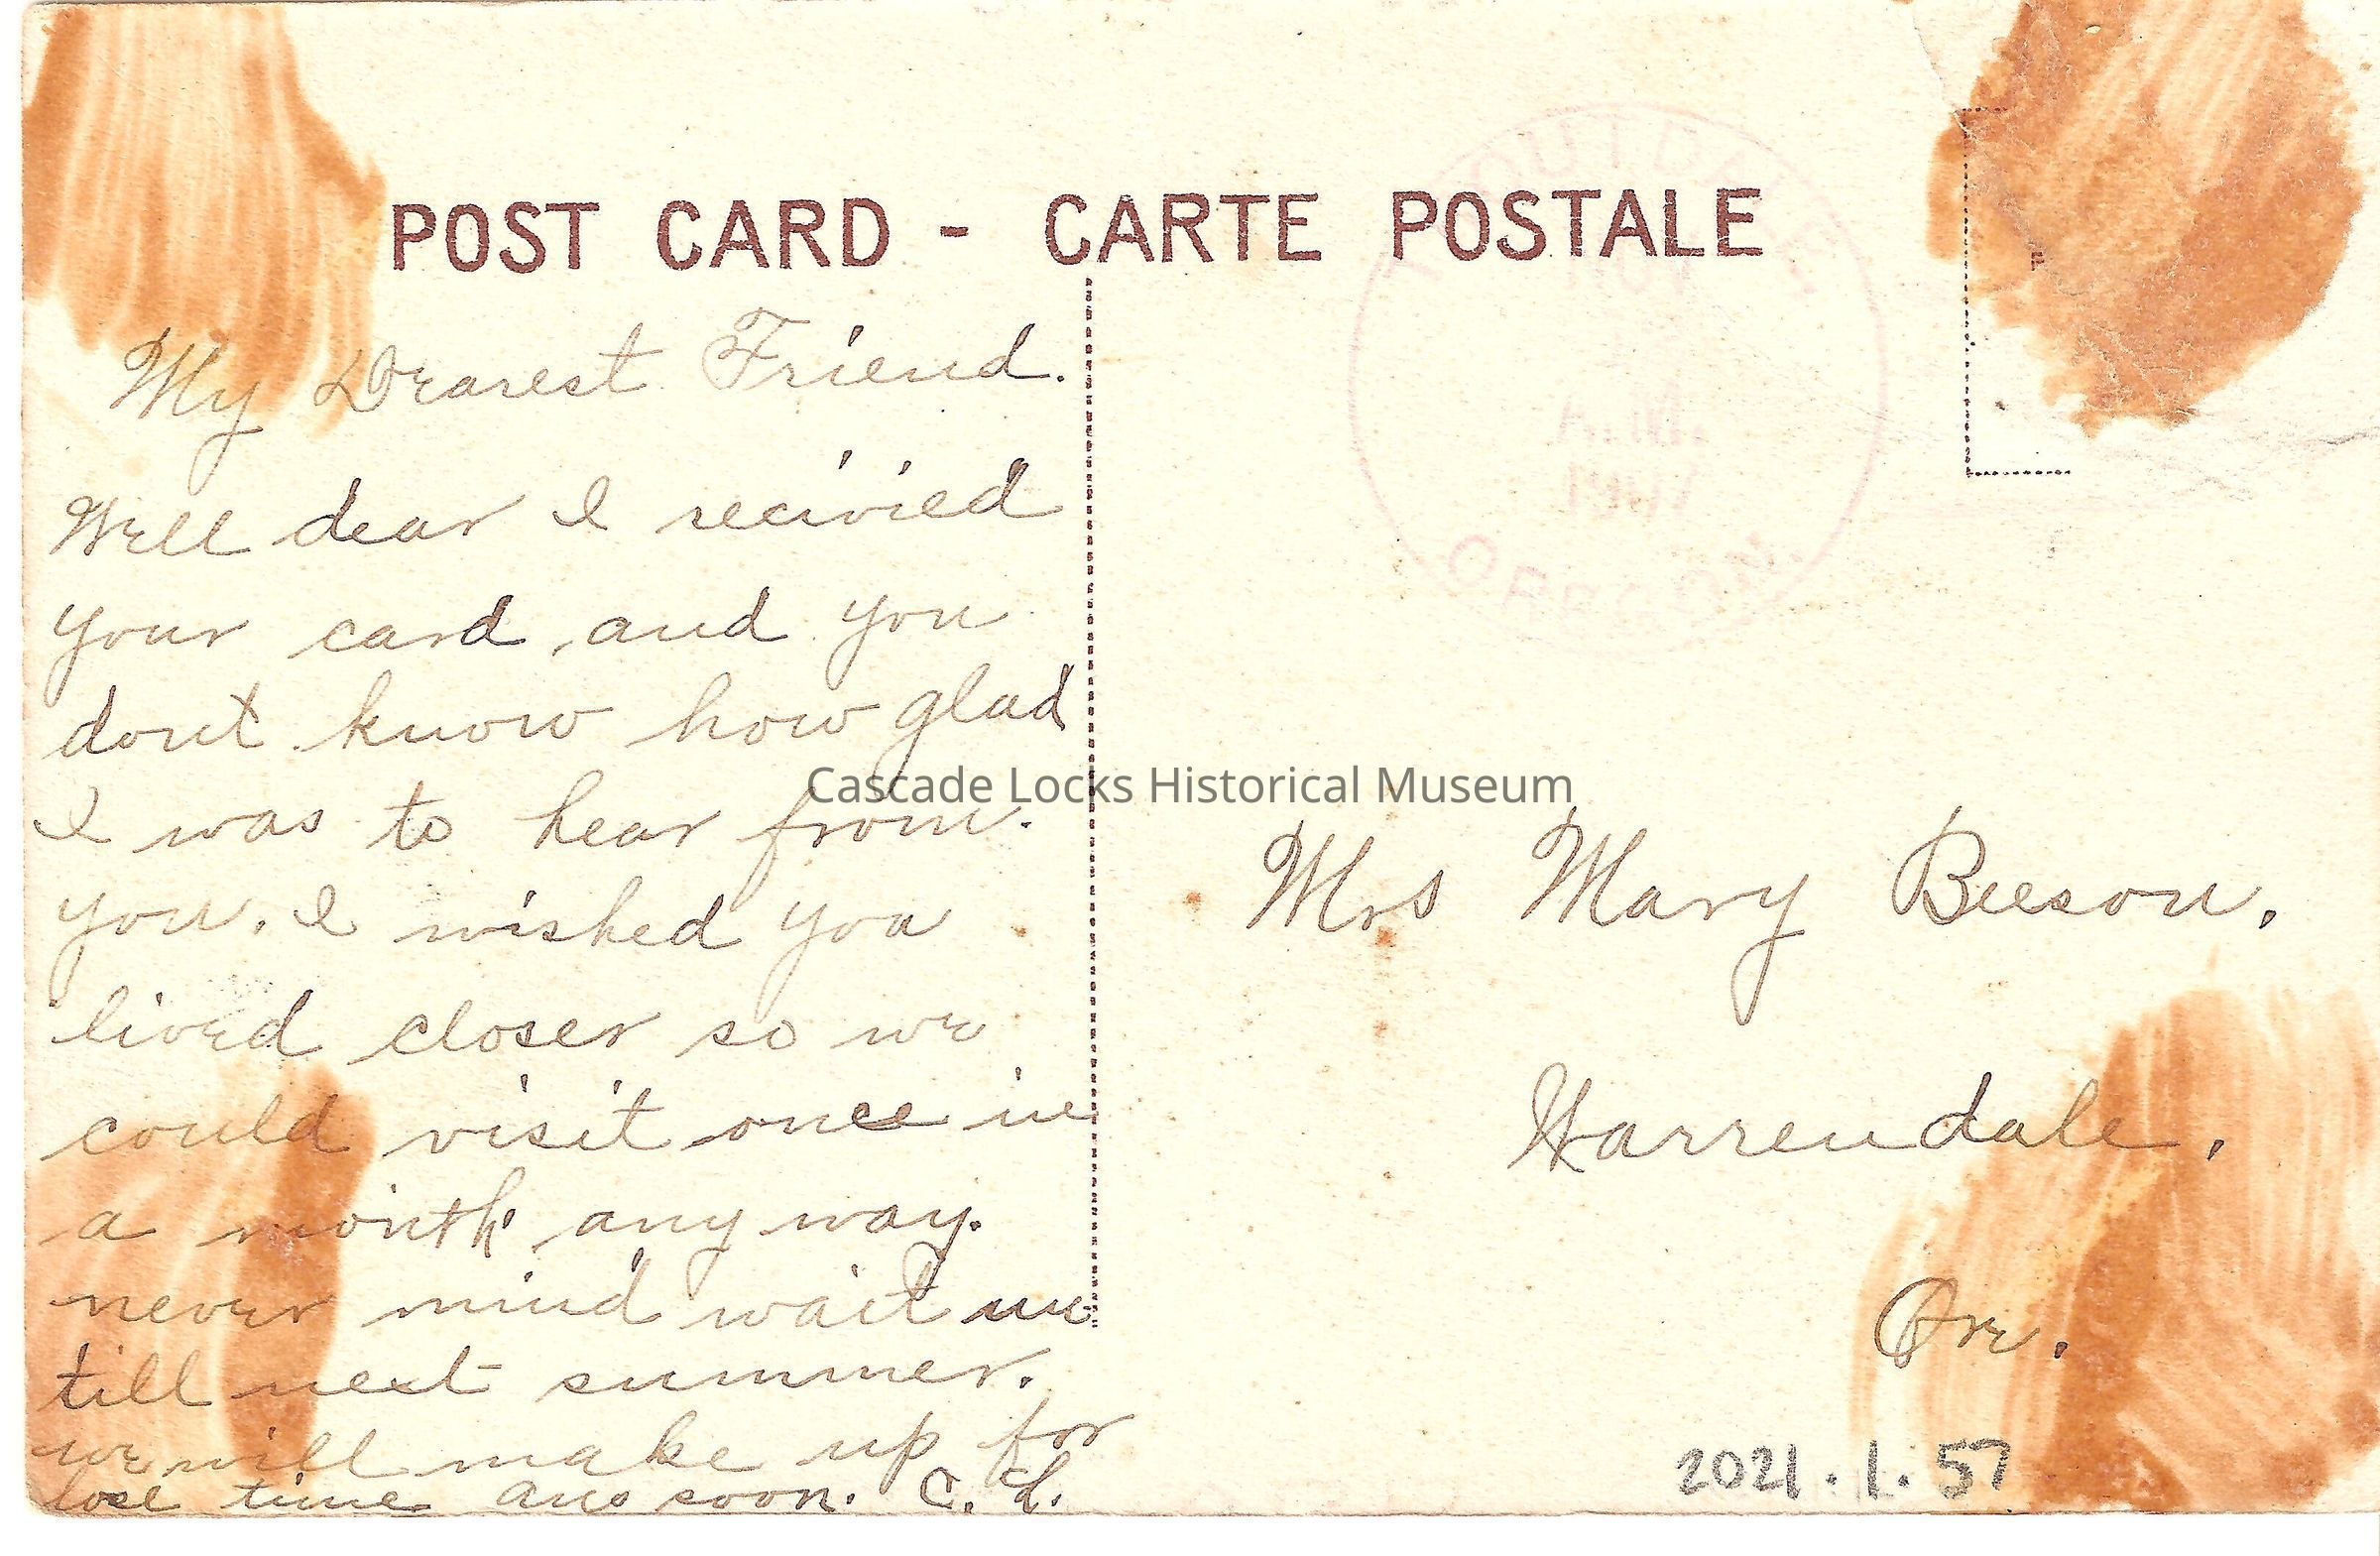 POST CARD - CARTE POSTALE
My Dearest Friend.
Well dear I recivied
your card and you
dont know how glad
I was to hear from.
you. I wished you
lived closer so we
could visit once in
a month any way.
never mind wait un
till next summer.
we will make up for
lose time Ans soon. C. L.
Mrs Mary Beeson.
Warrendale.
Ore.
2021.1.57
Cascade Locks Historical Museum